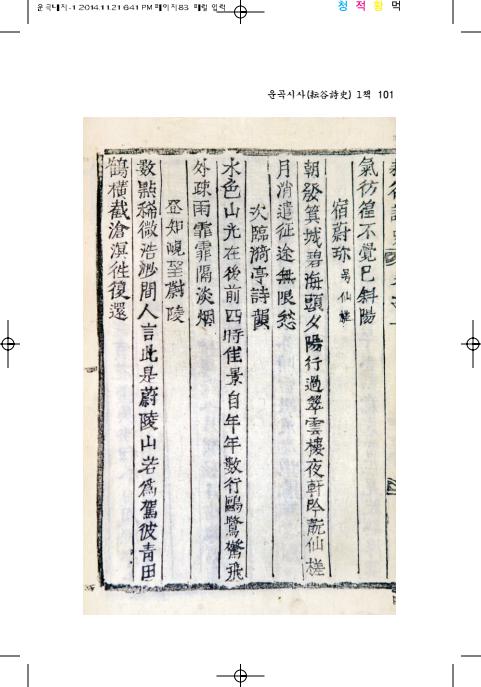 운곡내지-1 2014.11.21 6:41 PM 페이지83 매월 입력
청 적 황 먹
운곡시사(耘谷詩史) 1책 101
氣彷徨不覺已斜陽
宿蔚珍 号仙槎
朝發箕城碧海頭夕陽行過翠雲樓夜軒吟翫仙槎
月消遣征途無限愁
次臨漪亭詩韻
水色山光在後前四時佳景自年年數行鷗鷺驚飛
外疎雨霏霏隔淡烟
登知峴望蔚陵
數點稀微浩渺間人言此是蔚陵山若爲駕彼靑田
鶴橫截滄溟徃復還